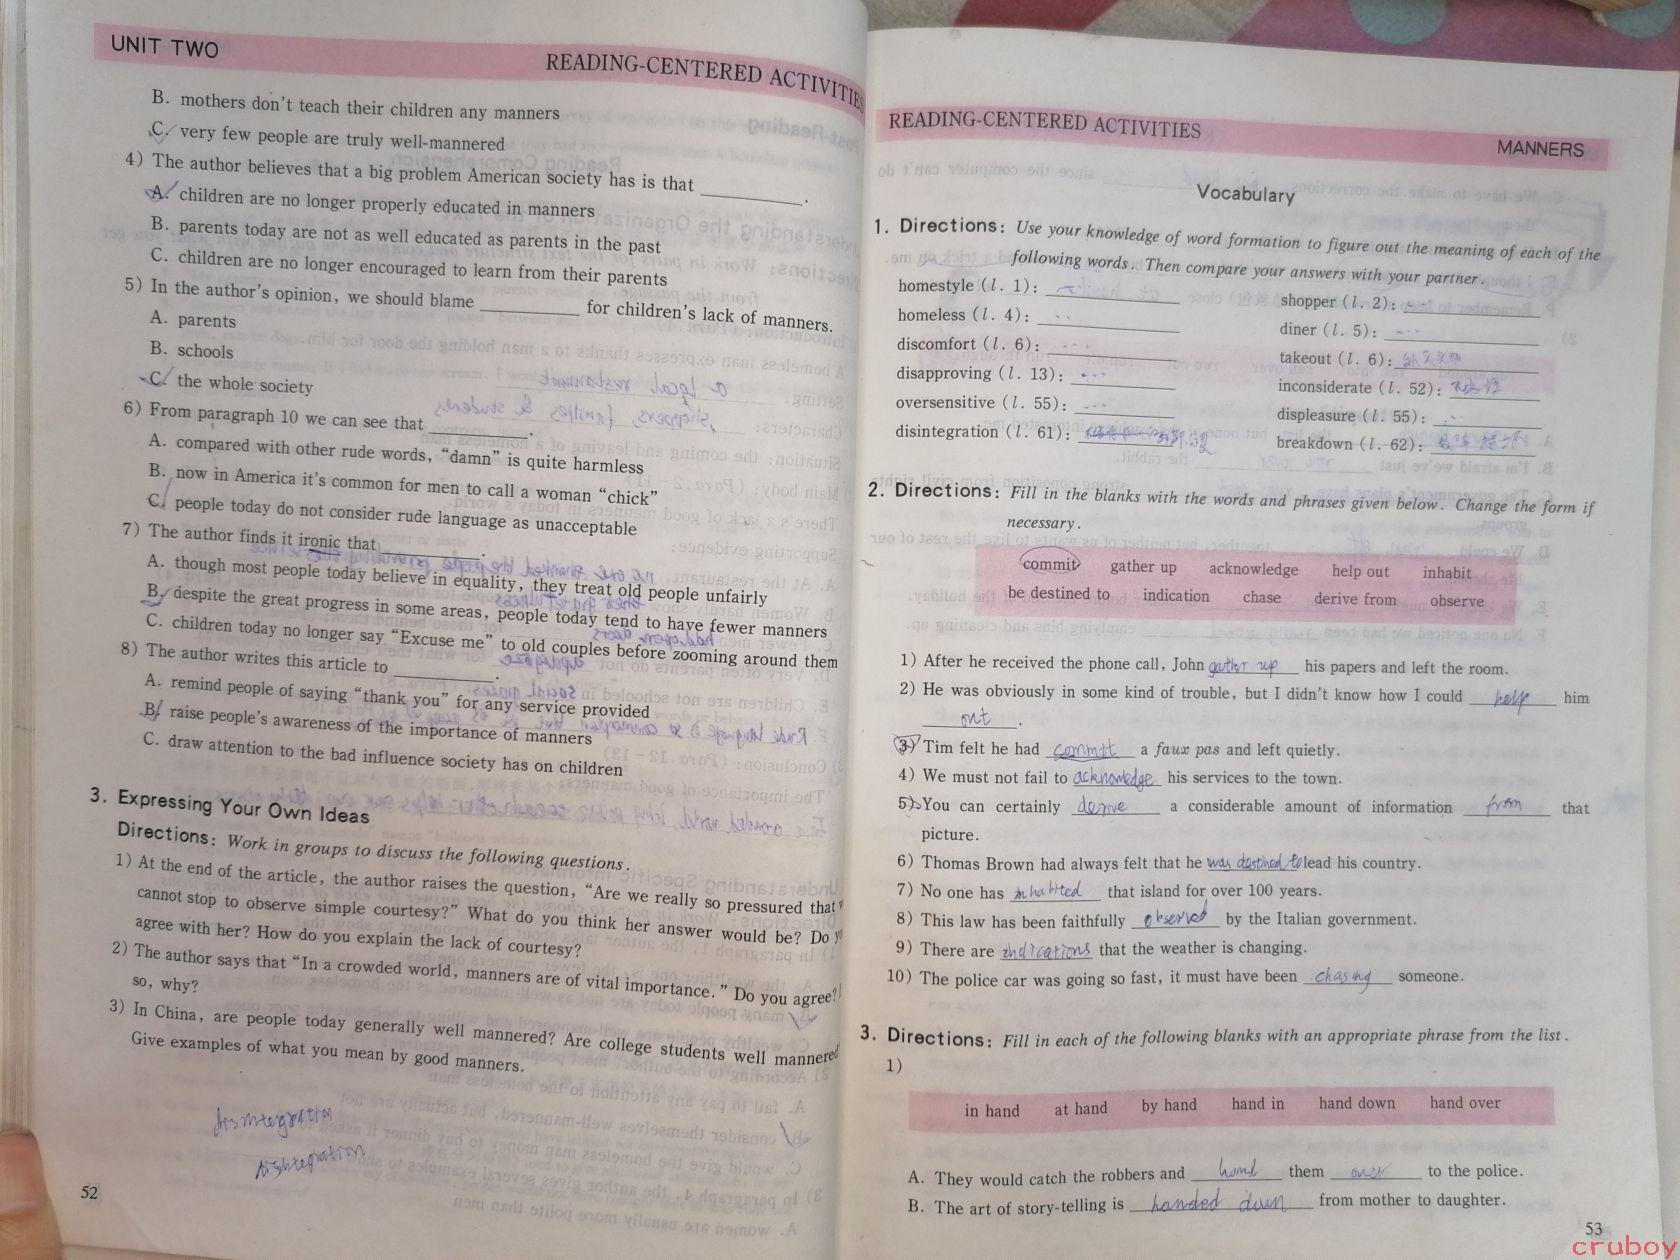 UNIT TWO
READING-CENTERED ACTIVITIES
B. mothers don't teach their children any manners
C. very few people are truly well-mannered
4) The author believes that a big problem American society has is that ____.
A. children are no longer properly educated in manners
B. parents today are not as well educated as parents in the past
C. children are no longer encouraged to learn from their parents
5) In the author's opinion, we should blame ____ for children's lack of manners.
A. parents
B. schools
C. the whole society
6) From paragraph 10 we can see that ____.
A. compared with other rude words, "damn" is quite harmless
B. now in America it's common for men to call a woman "chick"
C. people today do not consider rude language as unacceptable
7) The author finds it ironic that ____.
A. though most people today believe in equality, they treat old people unfairly
B. despite the great progress in some areas, people today tend to have fewer manners
C. children today no longer say "Excuse me" to old couples before zooming around them
8) The author writes this article to ____.
A. remind people of saying "thank you" for any service provided
B. raise people's awareness of the importance of manners
C. draw attention to the bad influence society has on children
3. Expressing Your Own Ideas
Directions: Work in groups to discuss the following questions.
1) At the end of the article, the author raises the question, "Are we really so pressured that
cannot stop to observe simple courtesy?" What do you think her answer would be? Do y
agree with her? How do you explain the lack of courtesy?
2) The author says that "In a crowded world, manners are of vital importance." Do you agree?
so, why?
3) In China, are people today generally well mannered? Are college students well mannered
Give examples of what you mean by good manners.
disintegration
52
READING-CENTERED ACTIVITIES
MANNERS
Vocabulary
1. Directions: Use your knowledge of word formation to figure out the meaning of each of the
following words. Then compare your answers with your partner.
homestyle (l. 1): ____ shopper (l. 2): ____
homeless (l. 4): ____ diner (l. 5): ____
discomfort (l. 6): ____ takeout (l. 6): ____
disapproving (l. 13): ____ inconsiderate (l. 52): ____
oversensitive (l. 55): ____ displeasure (l. 55): ____
disintegration (l. 61): ____ breakdown (l. 62): ____
2. Directions: Fill in the blanks with the words and phrases given below. Change the form if
necessary.
commit gather up acknowledge help out inhabit
be destined to indication chase derive from observe
1) After he received the phone call, John gather up his papers and left the room.
2) He was obviously in some kind of trouble, but I didn't know how I could help him
out.
3) Tim felt he had commit a faux pas and left quietly.
4) We must not fail to acknowledge his services to the town.
5) You can certainly derive a considerable amount of information from that
picture.
6) Thomas Brown had always felt that he was destined to lead his country.
7) No one has inhabited that island for over 100 years.
8) This law has been faithfully observed by the Italian government.
9) There are indications that the weather is changing.
10) The police car was going so fast, it must have been chasing someone.
3. Directions: Fill in each of the following blanks with an appropriate phrase from the list.
1)
in hand at hand by hand hand in hand down hand over
A. They would catch the robbers and hand them over to the police.
B. The art of story-telling is handed down from mother to daughter.
53
cruboy